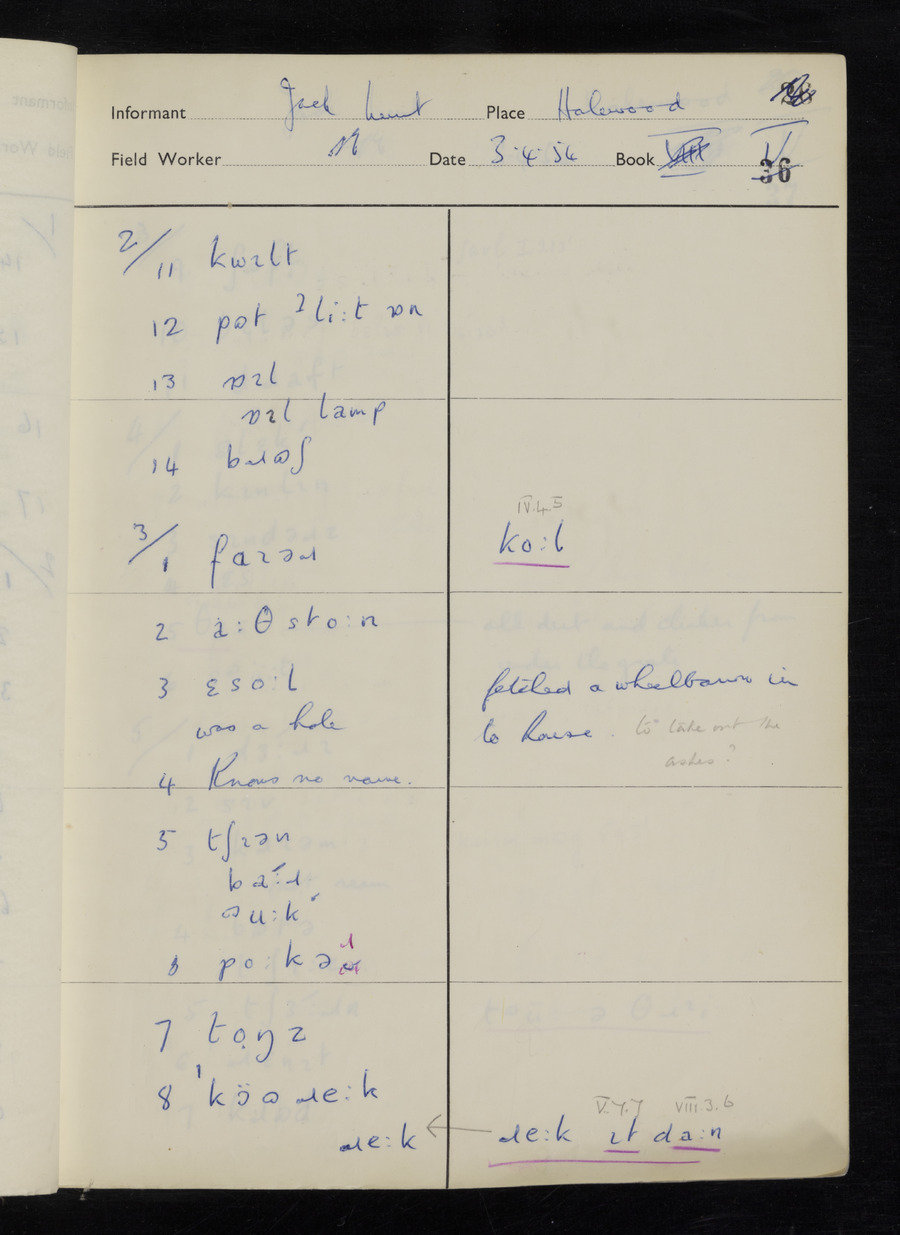 Informant Jack Place Halewood
Field Worker Date 3·4·54 Book V
36
2/11 kwɪlt
12 pɒt ˀli:t ɒn
13 ɒɪl
ɒɪl lamp
14 bɹʊʃ
IV.4.5
3/1 faɪəɹ ko:l
2 a:θsto:n
3 ɛso:l
was a hole
fetched a wheelbarrow in
to house. to take out the
ashes?
4 Knows no name.
5 tʃɪən
ba:ɹ
u:k
6 po:kəɹ
7 tɒŋz
V.7.7 VIII.3.6
8 ɹe:k
ɹe:k ← ɹe:k ɪt da:n